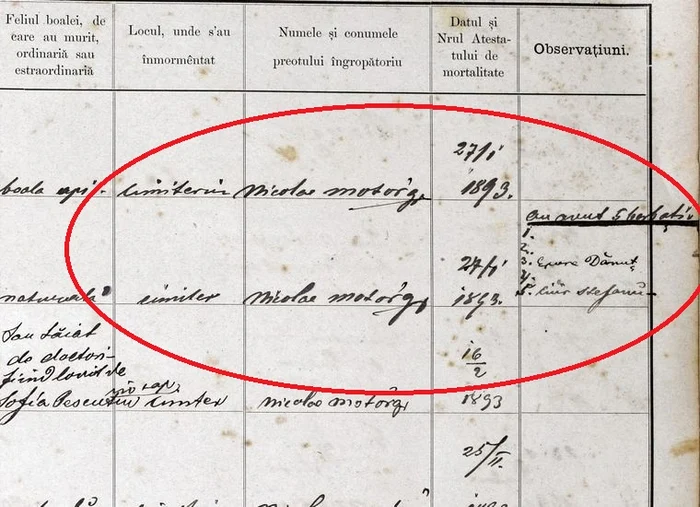 Feliul boalei, de
care au murit,
ordinariă sau
estraordinariă
Locul, unde s'au
înmormêntat
Numele și conumele
preotului îngropătoriu
Datul și
Nrul Atesta-
tului de
mortalitate
Observațiuni.
boala epi-
cimiteriu
Nicolae motórg
27/1
1893.
au avut 5 barbați
1.
2.
3. Dănuț
4.
5. Stefanu
naturală
cimiter
Nicolae motórg
27/1
1893.
Sau tăiat
do doctori
fiind lovit de
Sofia
cimiter
Nicolae motórg
16/2
1893
25/II.